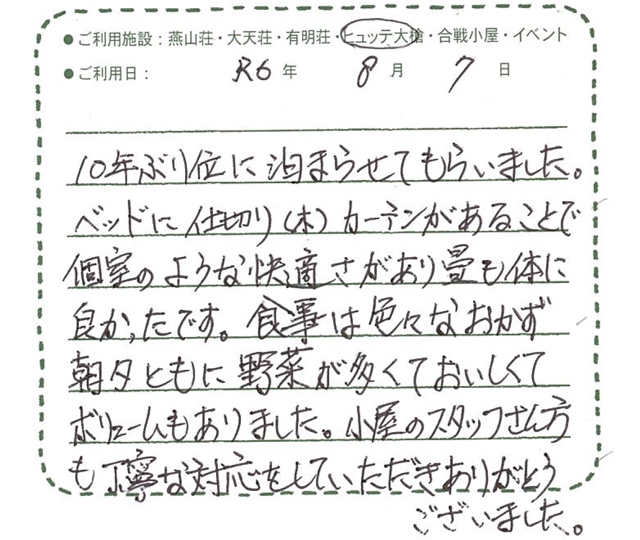 ●ご利用施設：燕山荘・大天荘・有明荘・ヒュッテ大槍・合戦小屋・イベント
●ご利用日： R6年 8月 7日
10年ぶり位に泊まらせてもらいました。
ベッドに仕切り(木)カーテンがあることで
個室のような快適さがあり畳も体に
良かったです。食事は色々なおかず
朝夕ともに野菜が多くておいしくて
ボリュームもありました。小屋のスタッフさん方
も丁寧な対応をしていただきありがとう
ございました。